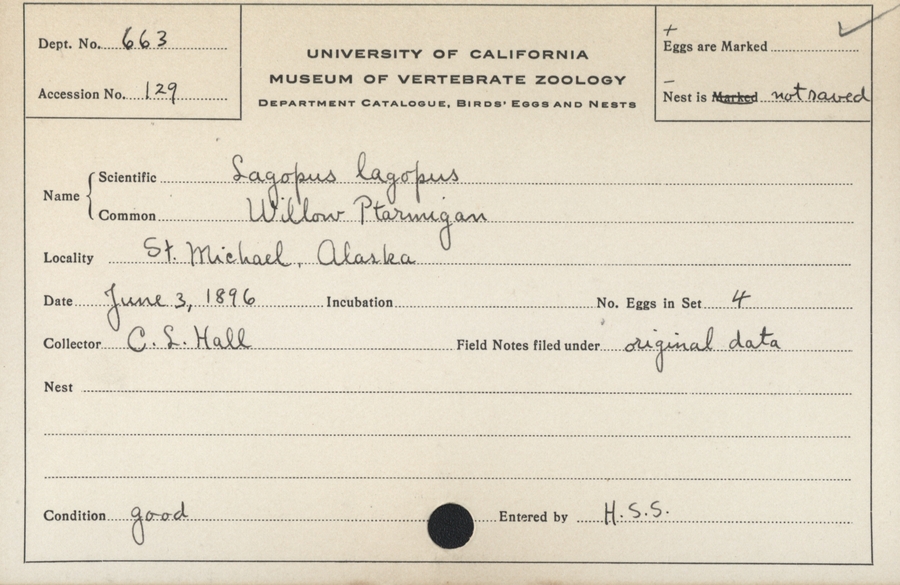 Dept. No. 663
Accession No. 129
UNIVERSITY OF CALIFORNIA
MUSEUM OF VERTEBRATE ZOOLOGY
DEPARTMENT CATALOGUE, BIRDS' EGGS AND NESTS
+
Eggs are Marked ✓
–
Nest is Marked not saved
Name
Scientific Lagopus lagopus
Common Willow Ptarmigan
Locality St. Michael, Alaska
Date June 3, 1896 Incubation No. Eggs in Set 4
Collector C. L. Hall Field Notes filed under original data
Nest
Condition good Entered by H.S.S.